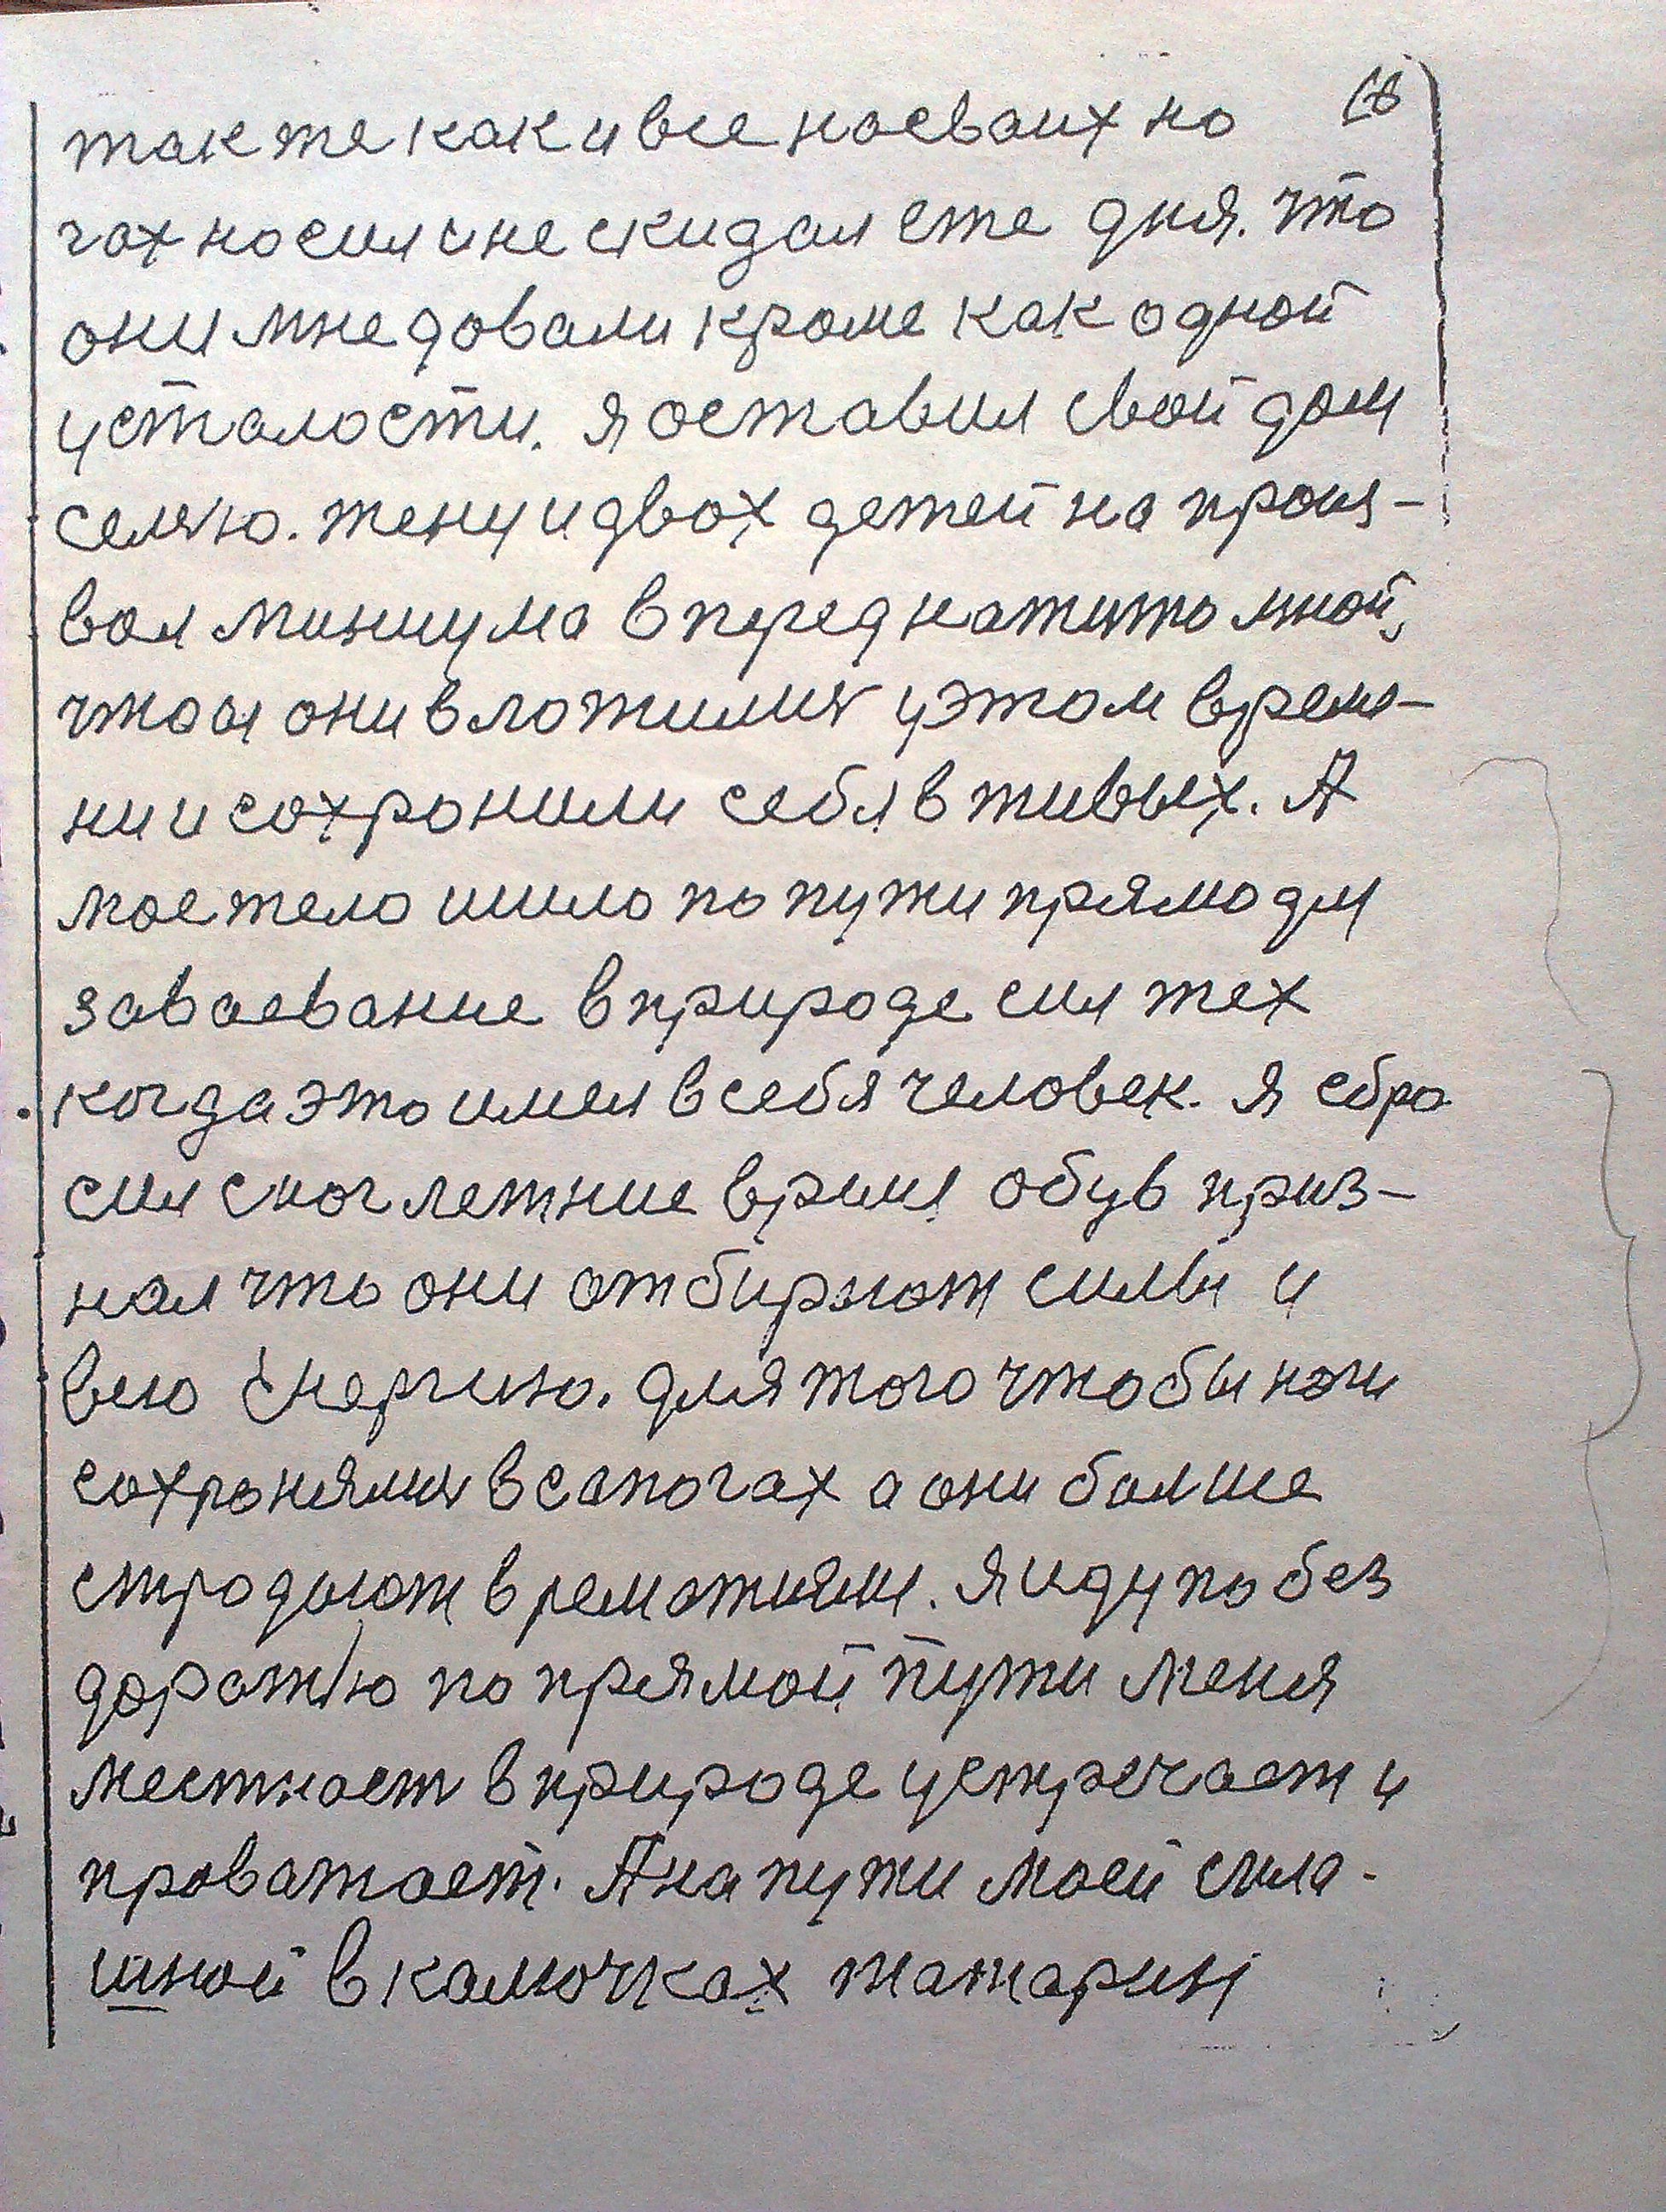 18
так же как и все на своих но
гах носил и не скидал еже дня. Что
они мне довали кроме как одной
усталости. я оставил свой дом
семью. жену и двох детей на проиs-
вол
чтобы они в ложились у этом време-
ни и сохронили себя в живых. А
мое тело шшло по пути прямо для
заваевание в природе сил тех
когда это имел в себя человек. Я сбро
сил с ног летние время обув приз-
нал что они отбирают силы и
всю Енергию. для того чтобы ноги
сохронялись в сапогах а они болше
стродают в
дорожью по прямой пути меня
местност в природе устречает и
проважает. А на пути моей спло-
шной в калючках татарин